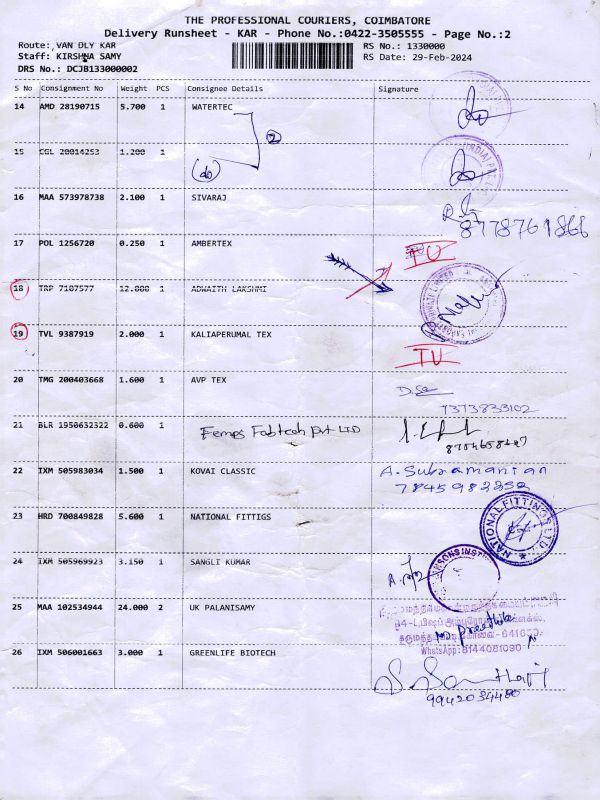 THE PROFESSIONAL COURIERS, COIMBATORE
Delivery Runsheet - KAR - Phone No.:0422-3505555 - Page No.:2
Route: VAN DLY KAR RS No.: 1330000
Staff: KIRSHNA SAMY RS Date: 29-Feb-2024
DRS No.: DCJB133000002
S No Consignment No Weight PCS Consignee Details Signature
14 AMD 28190715 5.700 1 WATERTEC
2
15 CGL 20014253 1.200 1 (do)
16 MAA 573978738 2.100 1 SIVARAJ
8778761866
17 POL 1256720 0.250 1 AMBERTEX
TU
18 TRP 7107577 12.000 1 ADWAITH LAKSHMI
19 TVL 9387919 2.000 1 KALIAPERUMAL TEX
TU
20 TMG 200403668 1.600 1 AVP TEX
7373833102
21 BLR 1950632322 0.600 1
22 IXM 505983034 1.500 1 KOVAI CLASSIC A. Subramanian
7845982252
23 HRD 700849828 5.600 1 NATIONAL FITTIGS
NATIONAL FITTINGS LTD.
24 IXM 505969923 3.150 1 SANGLI KUMAR
25 MAA 102534944 24.000 2 UK PALANISAMY
WhatsApp: 8144081090
26 IXM 506001663 3.000 1 GREENLIFE BIOTECH
9942034480